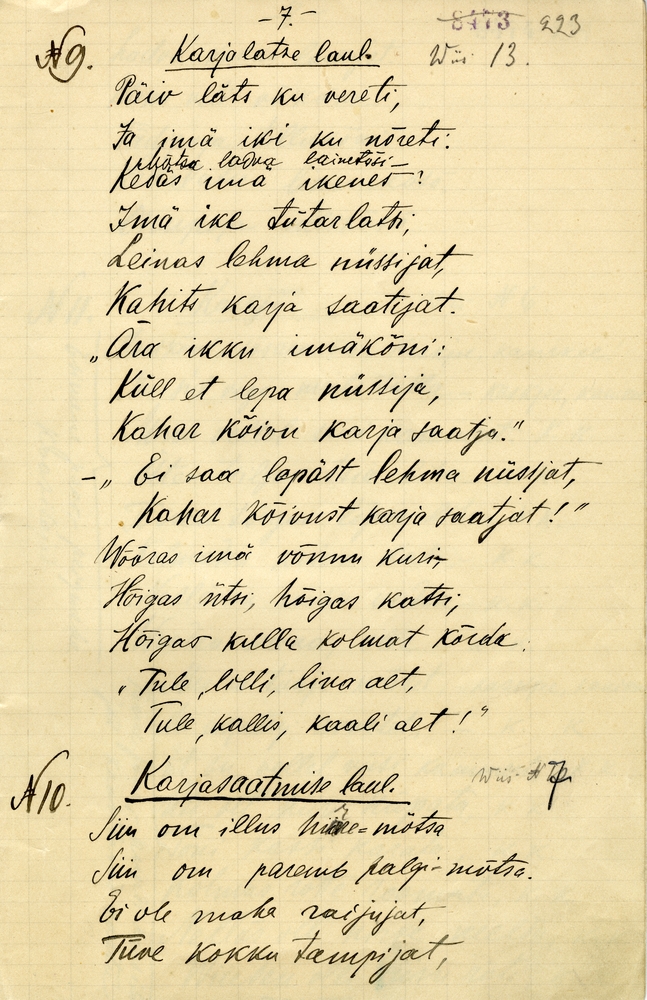 -7.-
8473 223
№9. Karjalatse laul. Wiis 13.
Päiv läts ku vereti,
Ja imä iki ku nõreti:
mõtsa ladva lainetõsi-
Kedäs imä ikenes?
Imä ike tütarlatsi,
Leinas lehma nüssijat,
Kahits karja saatijat.
„Ära ikku imäkõni:
Küll et lepa nüssija,
Kahar kõivu karja saatja."
-„Ei saa lepäst lehma nüssjat,
Kahar kõivust karja saatjat!"
Wõõras imä võnnu kuri,
Hõigas ütsi, hõigas katsi,
Hõigas kulla kolmat kõrda:
„Tule, lilli, lina alt,
Tule, kallis, kaali alt!"
№10. Karjasaatmise laul. Wiis № 7.
Siin om illus =mõtsa
Siin om paremb palgi-mõtsa.
Ei ole maha raijujat,
Tüve kokku tampijat,